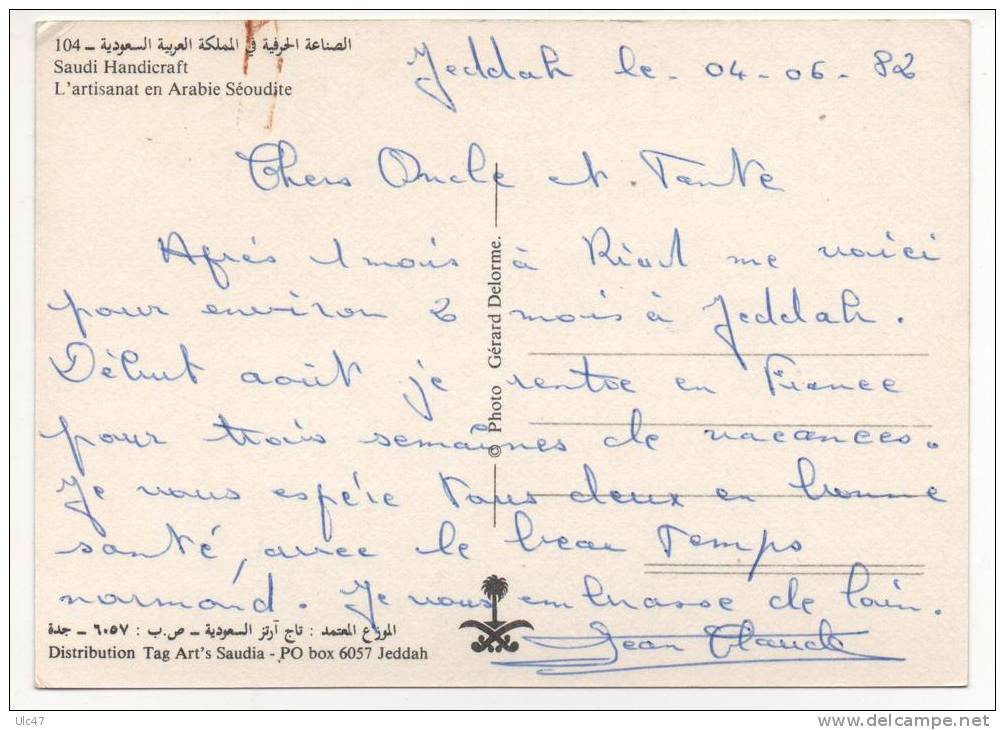 104 ــ الصناعة الحرفية في المملكة العربية السعودية
Saudi Handicraft
L'artisanat en Arabie Séoudite
Jeddah le - 04 - 06 - 82
Chers Oncle et Tante
Après 1 mois à Riad me voici
pour environ 2 mois à Jeddah.
Début août je rentre en France
pour trois semaines de vacances.
Je vous espère tous deux en bonne
santé, avec le beau temps
normand. Je vous embrasse de loin.
Jean Claude
© Photo Gérard Delorme.
الموزع المعتمد : تاج آرتز السعودية ــ ص.ب : ٦٠٥٧ ــ جدة
Distribution Tag Art's Saudia - PO box 6057 Jeddah
Ulc47
delcampe.net